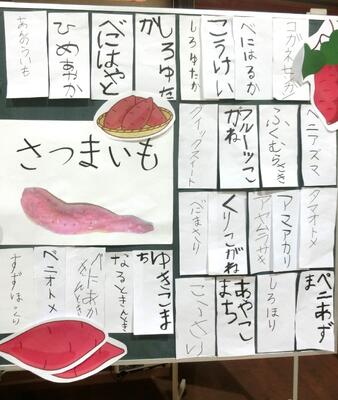 べにはるか
こうけい
しろゆたか
しろゆた
か
べにはやと
ひめあやか
さつまいも
ベニアズマ
ふくむらさき
フルーツこ
がね
クイックスイート
タマオトメ
アマアカリ
アヤムラサキ
くりこがね
べにまさり
ベニあず
ま
しろほり
あやこ
まち
ゆきこま
ち
なるときんとき
ベニオトメ
すずほっくり